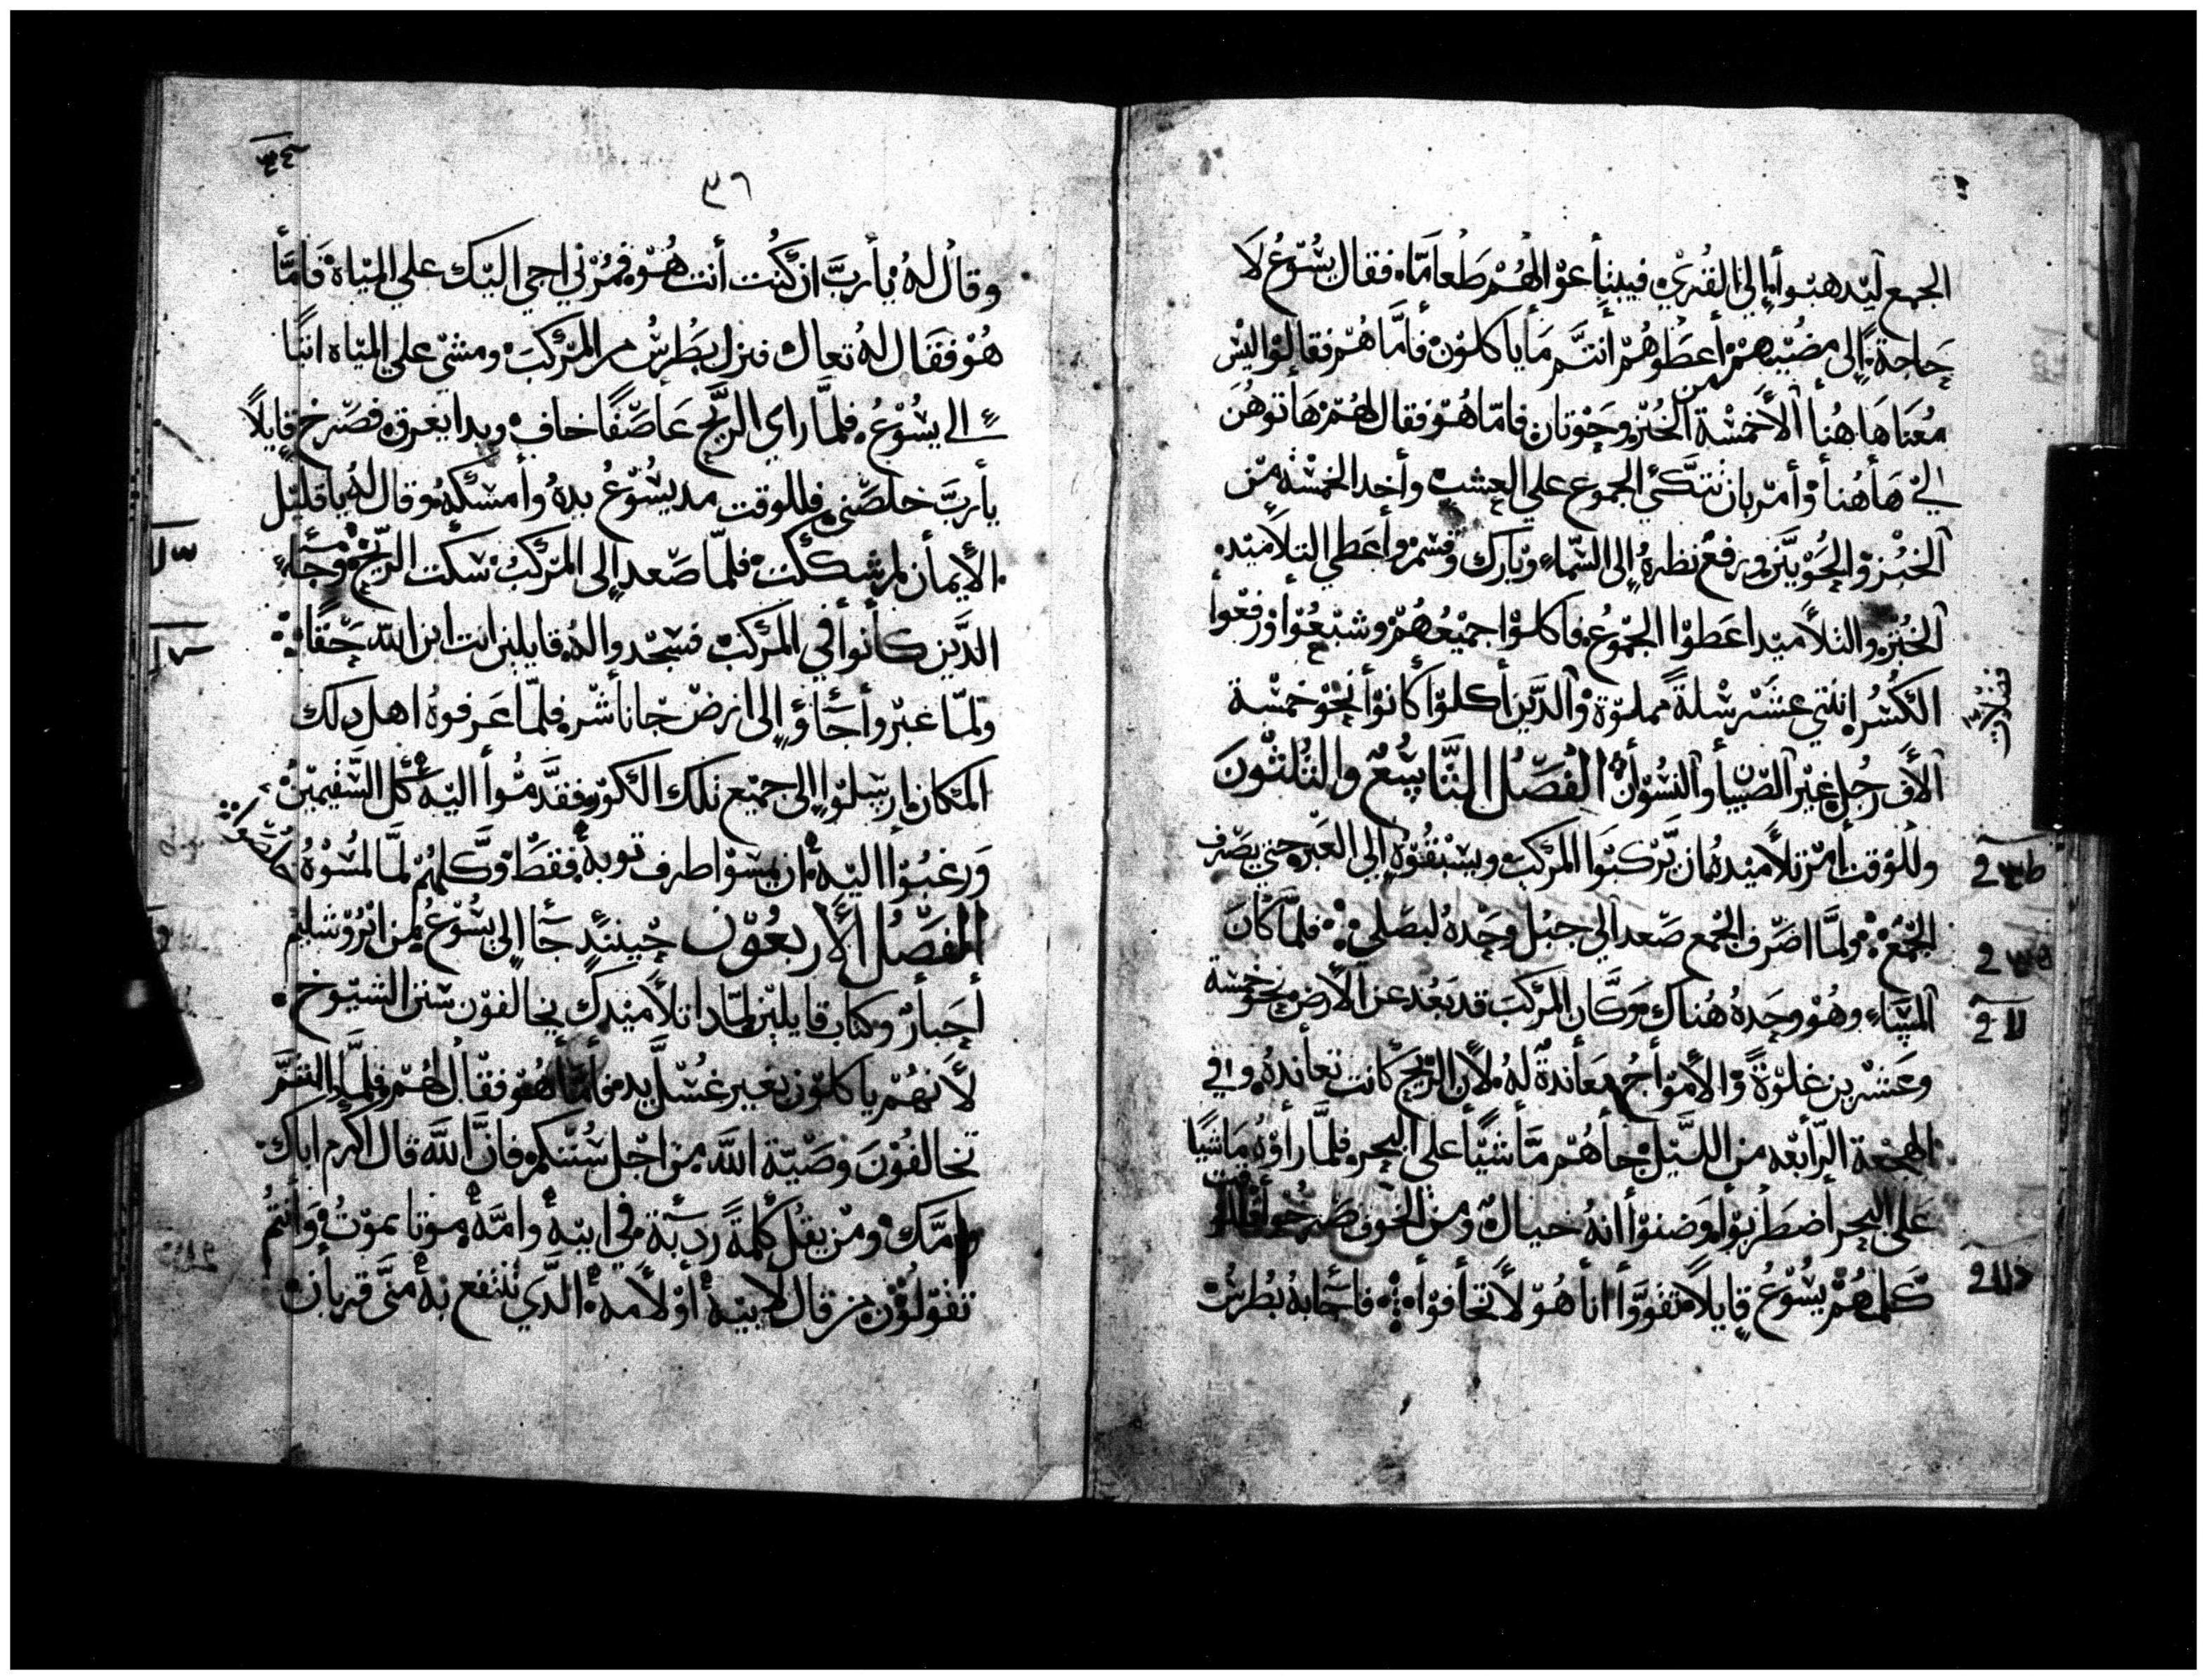 الجمع ليدهبوا إلى القري فيبتاعوا لهم طعاما فقال يسوع لا
حاجة إلى مضيهم أعطوهم أنتم ما ياكلون فأما هم فقالوا ليس
معنا هاهنا ألا خمسة من الخبز وحوتان فاما هو فقال لهم هاتوهن
الي هاهنا وأمر بان تتكي الجموع علي العشب وأخد الخمسه من
الخبز والحوتين ورفع نظره إلى السماء وبارك وقسم وأعطي التلاميد
الخبز والتلاميد اعطوا الجموع فاكلوا جميعهم وشبعوا ورفعوا
الكسر اثنتي عشر سلة مملوة والدين أكلوا كانوا نحو خمسة
آلاف رجل غير الصبيان والنسوان الفصل التاسع والثلثون
وللوقت أمر تلاميده ان يركبوا المركب ويسبقوه إلي العبر حتي يصرف
الجمع ولما اصرف الجمع صعد الي جبل وحده ليصلي فلما كان
المساء وهو وحده هناك وكان المركب قد بعد عن الأرض نحو خمسة
وعشرين غلوة والأمواج معاندة له لأن الريح كانت تعانده وفي
الهجعة الرابعه من الليل جأهم ماشيا على البحر فلما رأوه ماشيا
على البحر أضطربوا وضنوا أنه خيال ومن الخوف صرخوا
كلمهم يسوع قايلا تقووا انا هو لا تخافوا فاجابه بطرس
٣٦
وقال له يأرب ان كنت أنت هو فمرني اجي اليك علي المياه فاما
هو فقال له تعال فنزل بطرس من المركب ومشي علي المياه اتيا
الي يسوع فلما راي الريح عاصفا خاف وبدا يغرق فصرخ قايلا
يأرب خلصني فللوقت مد يسوع يده وأمسكه وقال له ياقليل
الأيمأن لم شككت فلما صعد إلى المركب سكت الريح وجاء
الدين كأنوأ في المركب فسجدوا له قايلين انت ابن الله حقا
ولما عبروأ جاؤ إلى ارض جاناشر فلما عرفوه اهل دلك
المكان ارسلوا إلى جميع تلك الكور فقدموا اليه كل السقيمين
ورغبوا اليه ان يمسوا طرف توبه فقط وكلهم لما لمسوه خلصوا
الفصل الأربعون حينئد جا إلى يسوع من ايروشليم
أحبار وكتاب قايلين لمادا تلاميدك يخالفون سنن الشيوخ
لأنهم ياكلون بغير غسل يد فأما هو فقال لهم فلما انتم
تخالفون وصية الله من اجل سنتكم فان الله قال اكرم اباك
وامك ومن يقل كلمة ردية في ابيه وامه موتا يموت وأنتم
تقولون من قال لابيه أو لأمه الدي تنتفع به مني قربان